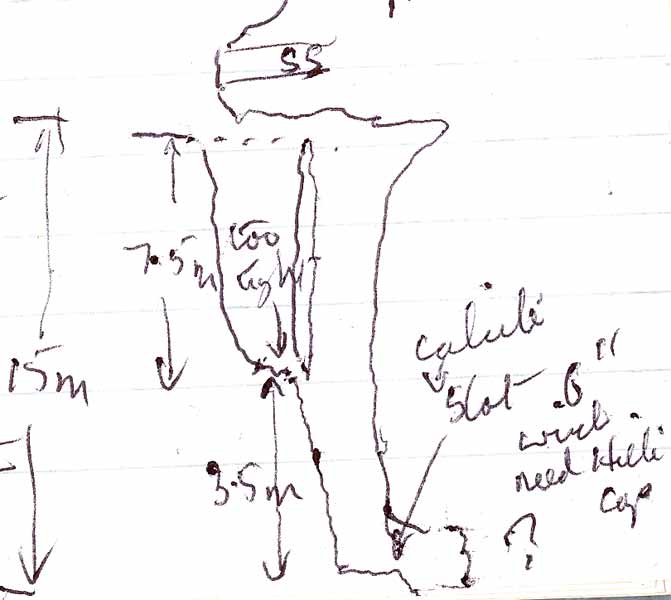 SS
7.5m
too
tight
15m
3.5m
calcite
slot
6"
need Hilti
cap
?